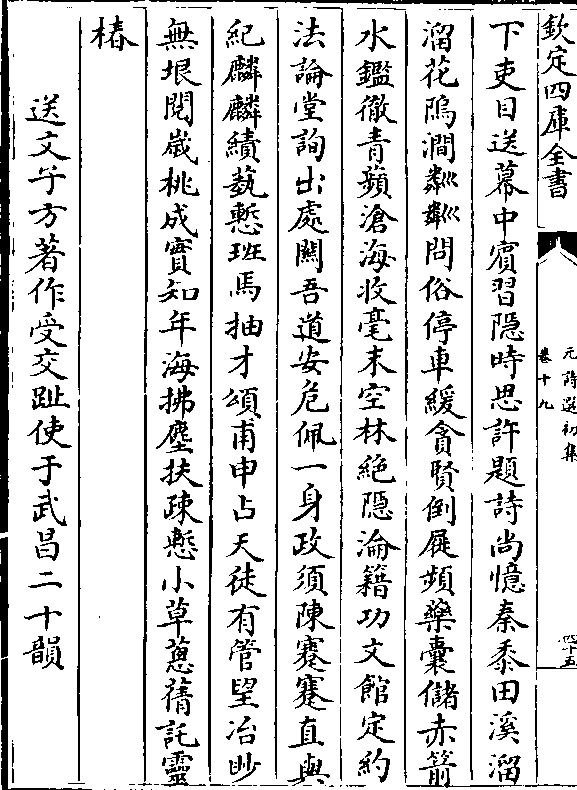 欽定四庫全書
元詩選初集
卷十九
四十五
下吏目送幕中賓習隠時思許題詩尚憶秦黍田溪溜
溜花隖澗粼粼問俗停車緩貪賢倒屣頻藥囊儲赤箭
水鑑徹青蘋滄海收毫末空林絶隠淪籍功文館定約
法論堂詢出處闗吾道安危佩一身政須陳蹇蹇直與
紀麟麟績藝慙班馬抽才頌甫申占天徒有管望冶眇
無垠閲嵗桃成實知年海拂塵扶疎慙小草蔥蒨託靈
椿
送文子方著作受交趾使于武昌二十韻